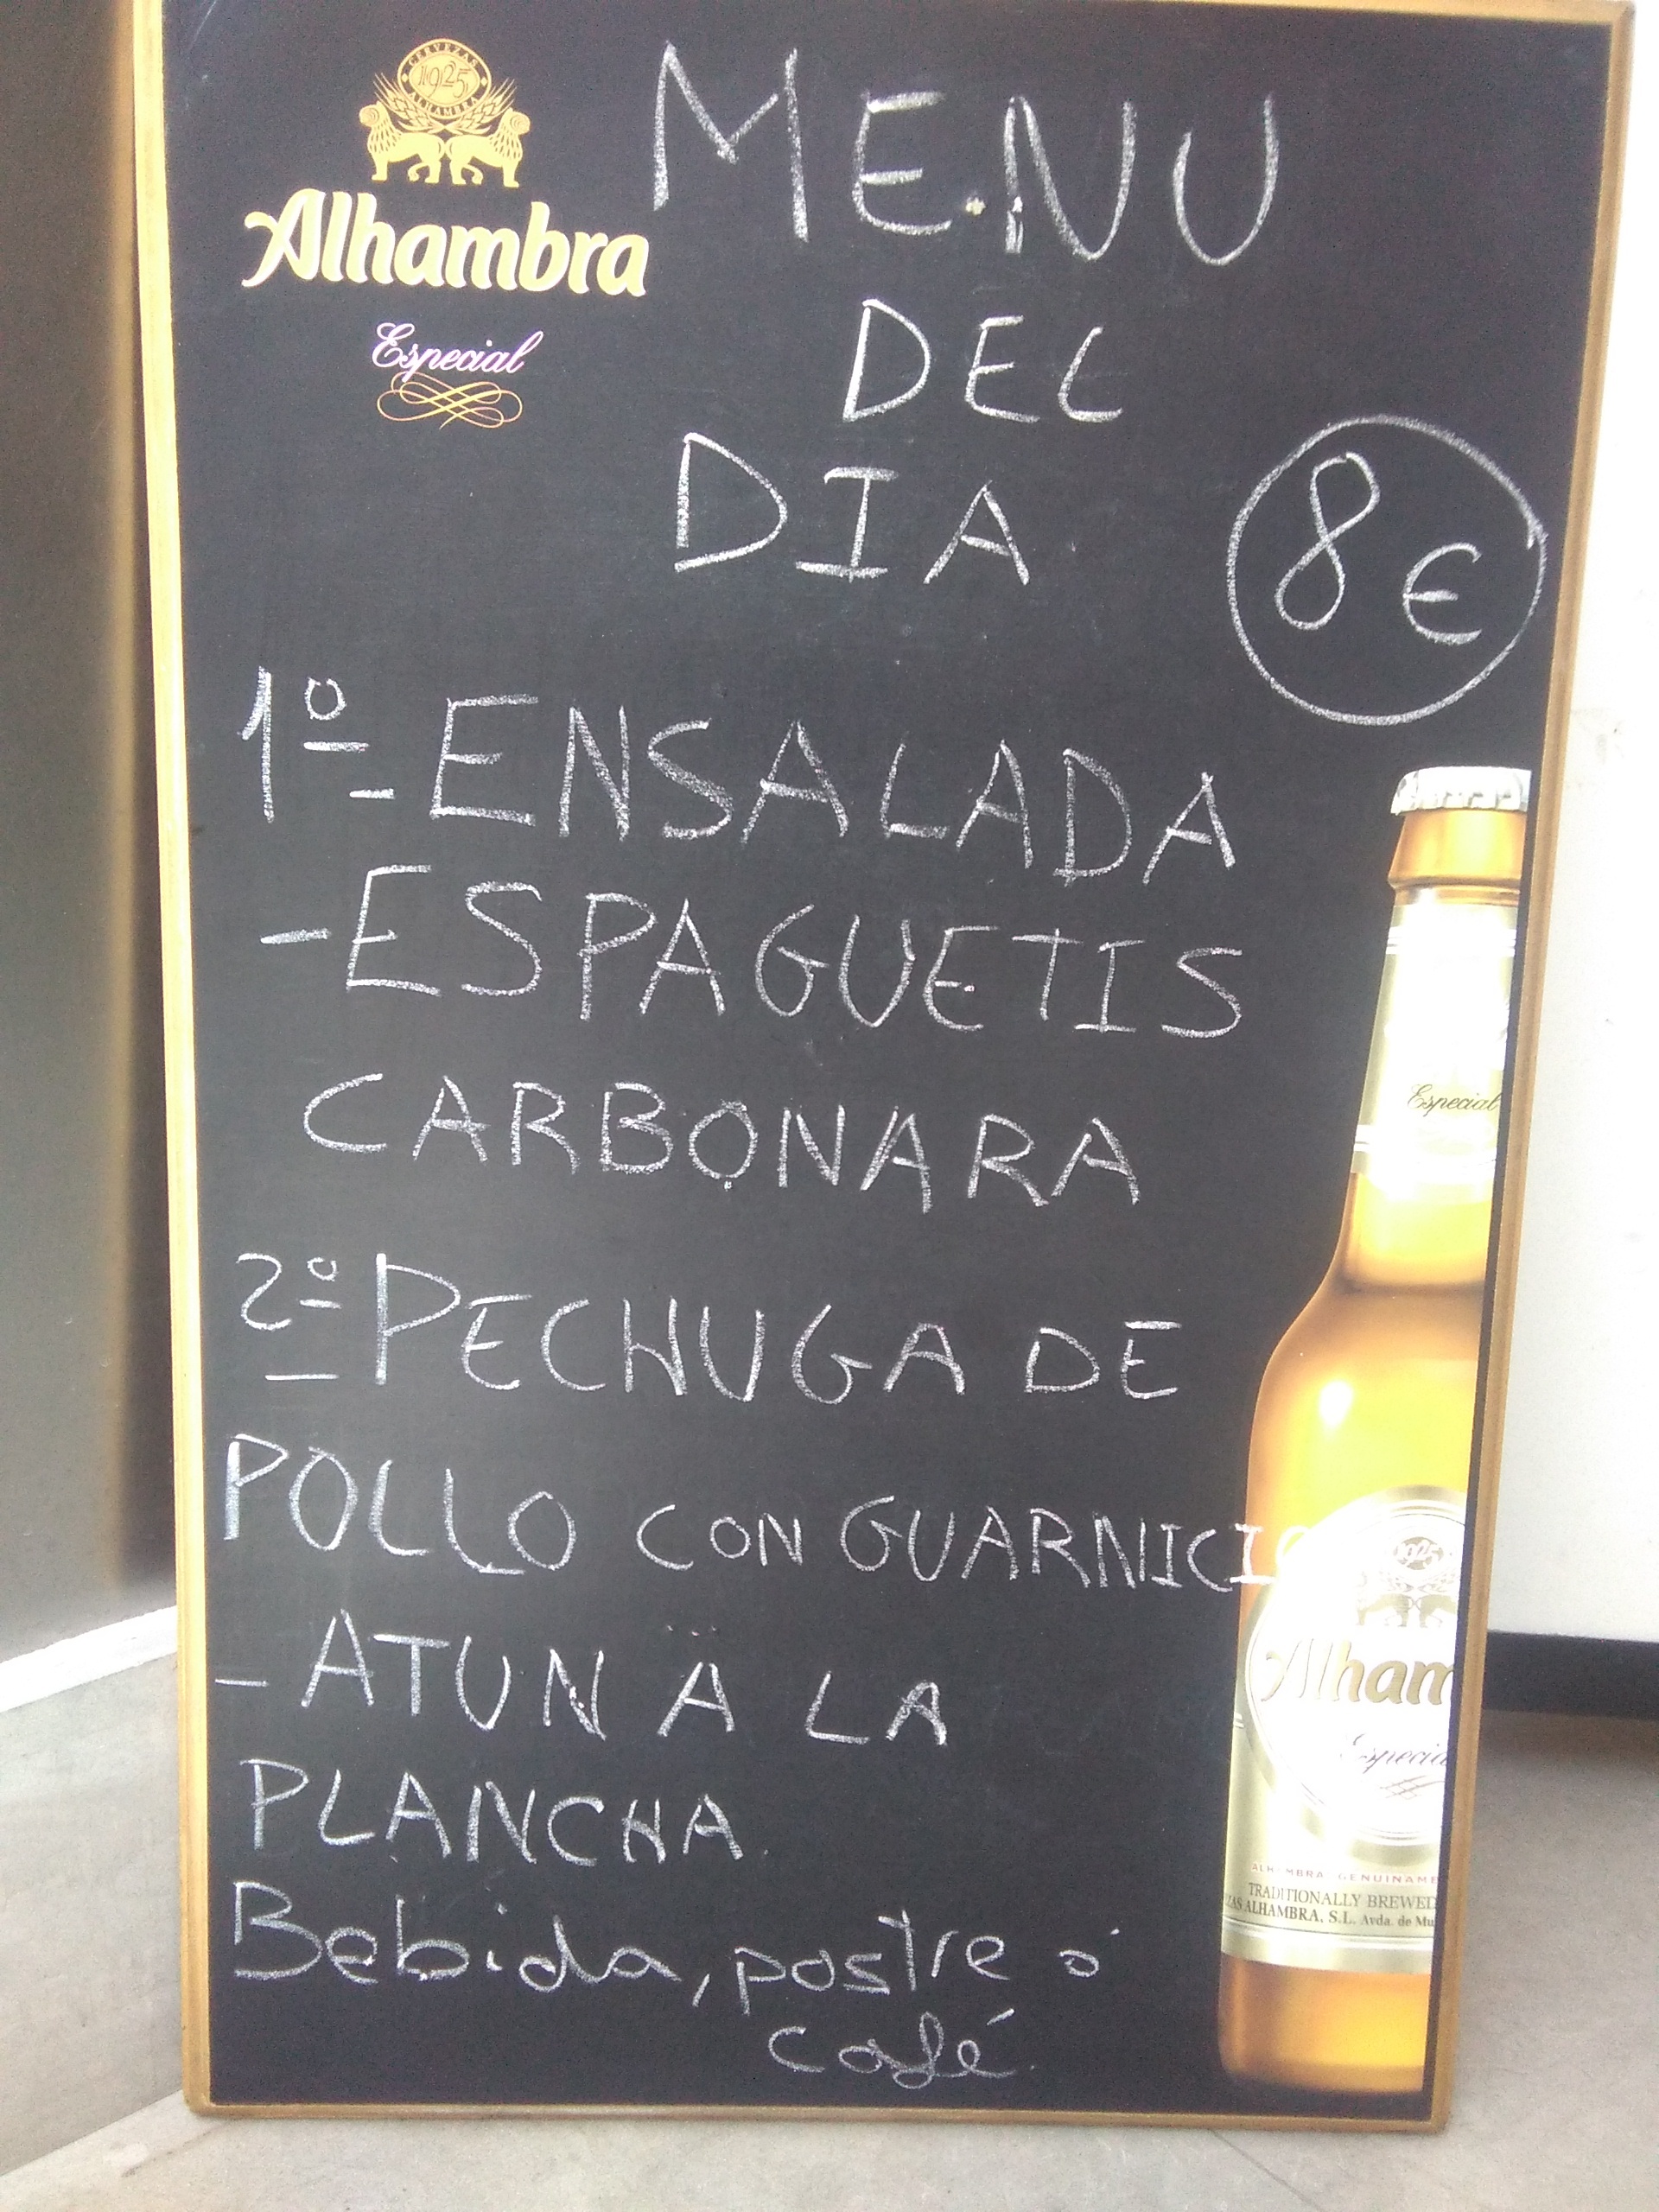 CERVEZAS
1925
ALHAMBRA
Alhambra
Especial
MENU
DEL
DIA
8€
1º-ENSALADA
-ESPAGUETIS
CARBONARA
2º-PECHUGA DE
POLLO CON GUARNICIO
-ATUN A LA
PLANCHA
Bebida, postre ó
café
Especial
1925
Alham
Especia
TRADITIONALLY BREWED
ZAS ALHAMBRA, S.L. Avda. de Mu